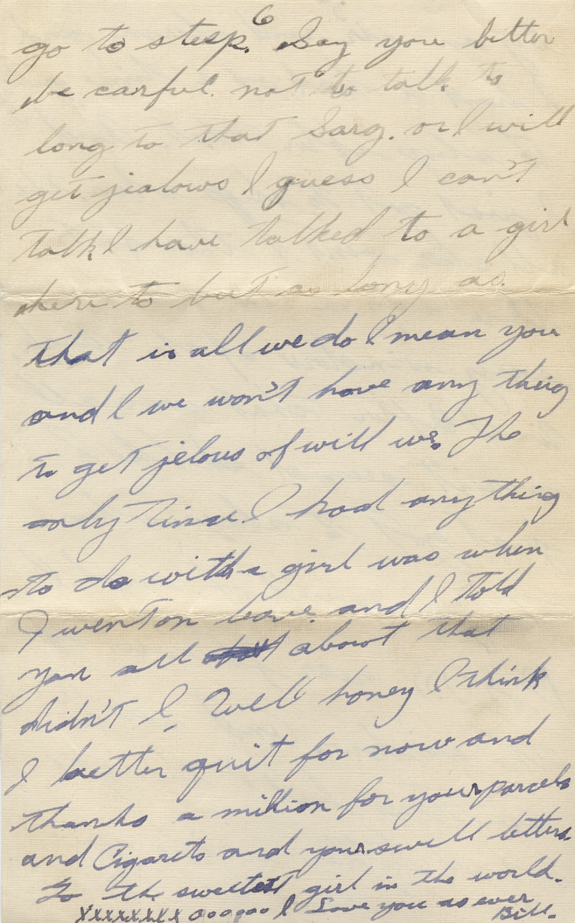 6
go to sleep. Say you better
be carful not to talk to
long to that Sarg. or I will
get jealows I guess I can't
talk I have talked to a girl
here to but as long as
that is all we do I mean you
and I we won't have any thing
to get jelous of will we. The
only time I had anything
to do with a girl was when
I went on leave and I told
you all about that
didn't I. Well honey I think
I better quit for now and
thanks a million for your parcels
and Cigarets and your swell letters
To the sweetest girl in the world.
XXXXXXXX oooooo I Love you as ever
Bill.